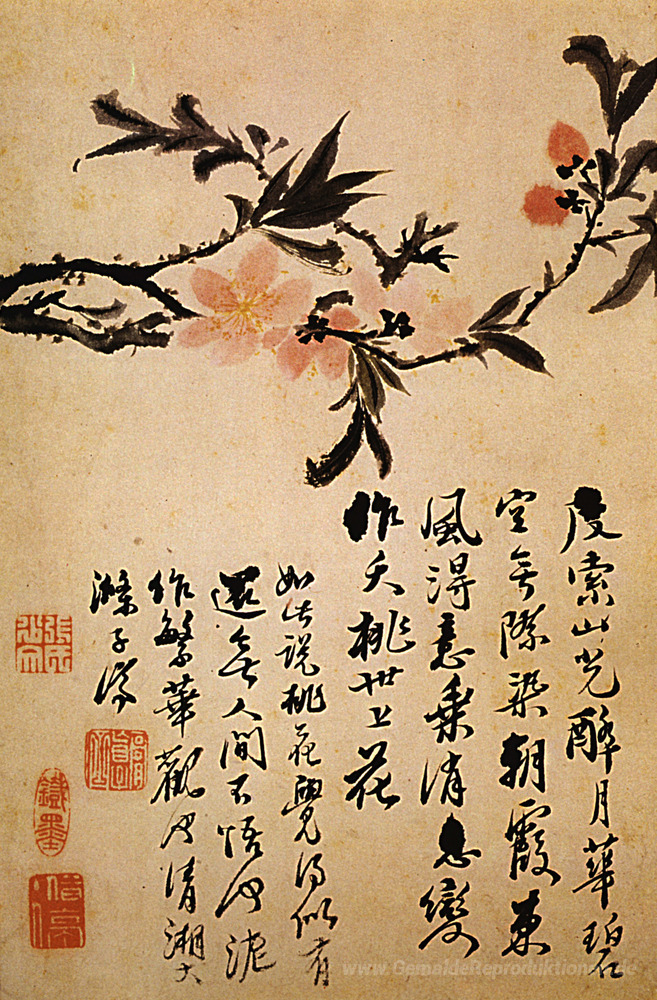 度索山光醉月華碧
空無際染朝霞東
風得意乘消息變
作夭桃世上花
如此說桃花覺得似有
還無人間不悟何泥
作繁華觀也清湘大
滌子濟
www.GemaldeReproduktion.de